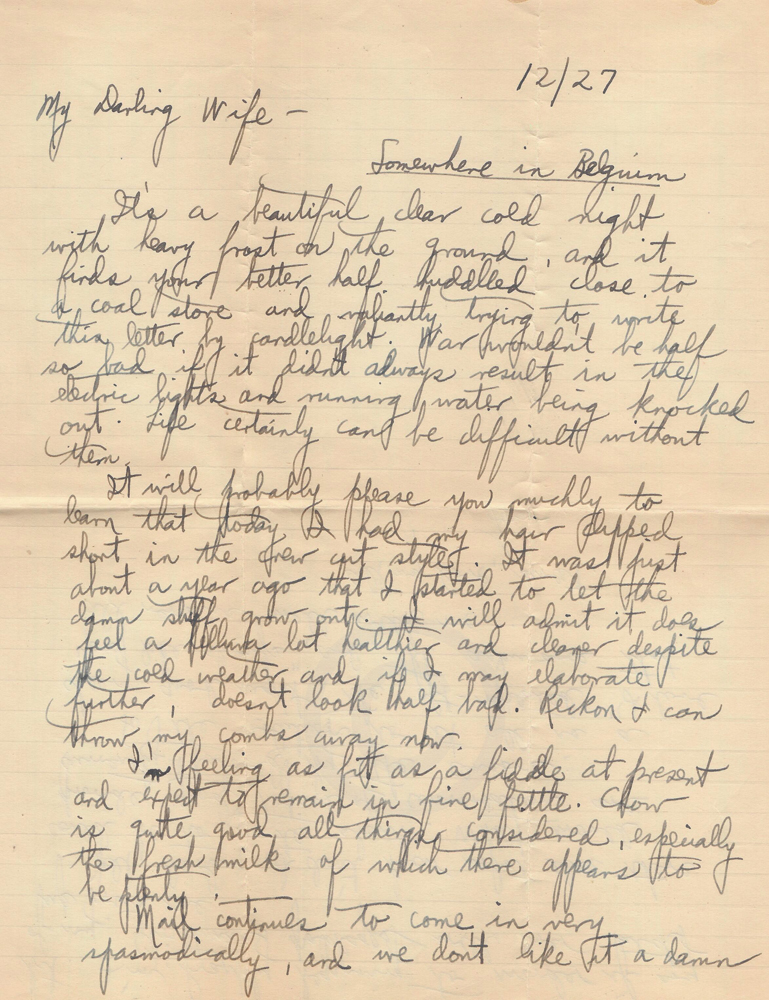 12/27
My Darling Wife –
Somewhere in Belgium
It's a beautiful clear cold night
with heavy frost on the ground, and it
finds your better half huddled close to
a coal stove and valiantly trying to write
this letter by candlelight. War wouldn't be half
so bad if it didn't always result in the
electric lights and running water being knocked
out. Life certainly can be difficult without
them.
It will probably please you muchly to
learn that today I had my hair clipped
short in the crew cut style. It was just
about a year ago that I started to let the
damn stuff grow out. I will admit it does
feel a helluva lot healthier and cleaner despite
the cold weather and, if I may elaborate
further, doesn't look half bad. Reckon I can
throw my combs away now.
I'm feeling as fit as a fiddle at present
and expect to remain in fine fettle. Chow
is quite good all things considered, especially
the fresh milk of which there appears to
be plenty.
Mail continues to come in very
spasmodically, and we don't like it a damn